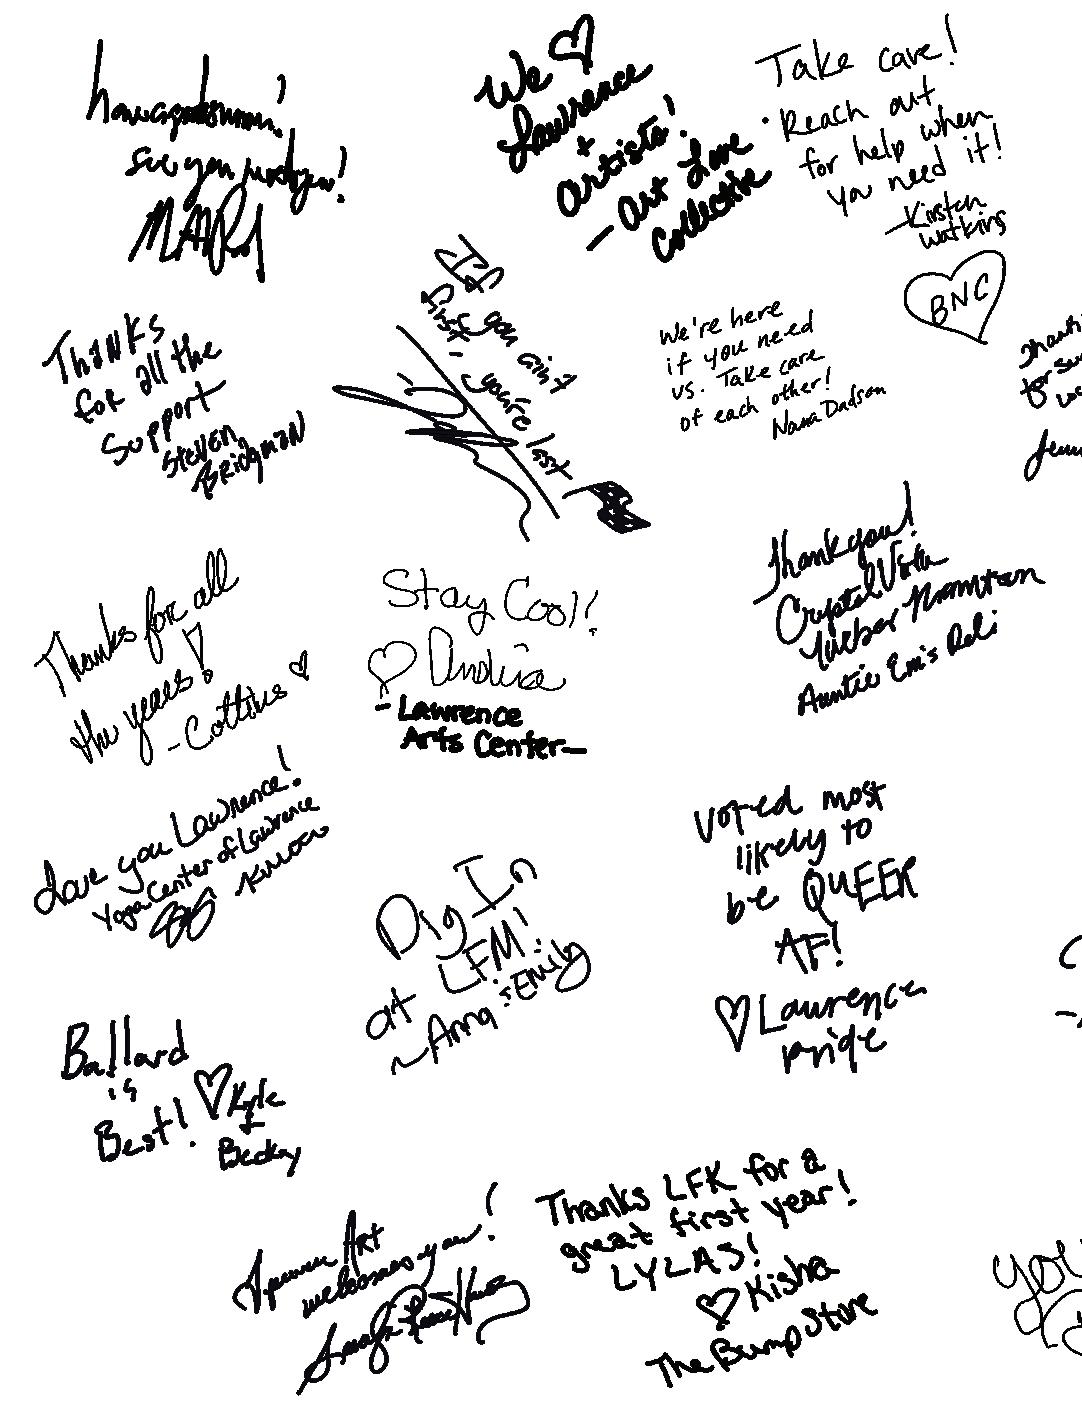 see you
We ♡
Lawrence
+
artists!
- Art Love
Collective
Take care!
Reach out
for help when
you need it!
-Kirsten
Watkins
BNC
Thanks
for all the
support
Steven
Bridgman
If you ain't
first,
you're last
We're here
if you need
us. Take care
of each other!
Nana Dadson
Thank you!
Crystal Vista
Auntie Em's Deli
Thanks for all
the years!
-Cottins ♡
Stay Cool!
♡ Andria
- Lawrence
Arts Center-
Love you Lawrence!
Yoga Center of Lawrence
Voted most
likely to
be QUEER
AF!
♡ Lawrence
pride
Dig In
at LFM!
~Anna & Emily
Ballard
is
Best!
♡ Kyle
+
Becky
Art
welcomes you!
Thanks LFK for a
great first year!
LYLAS!
♡ Kisha
The Bump Store